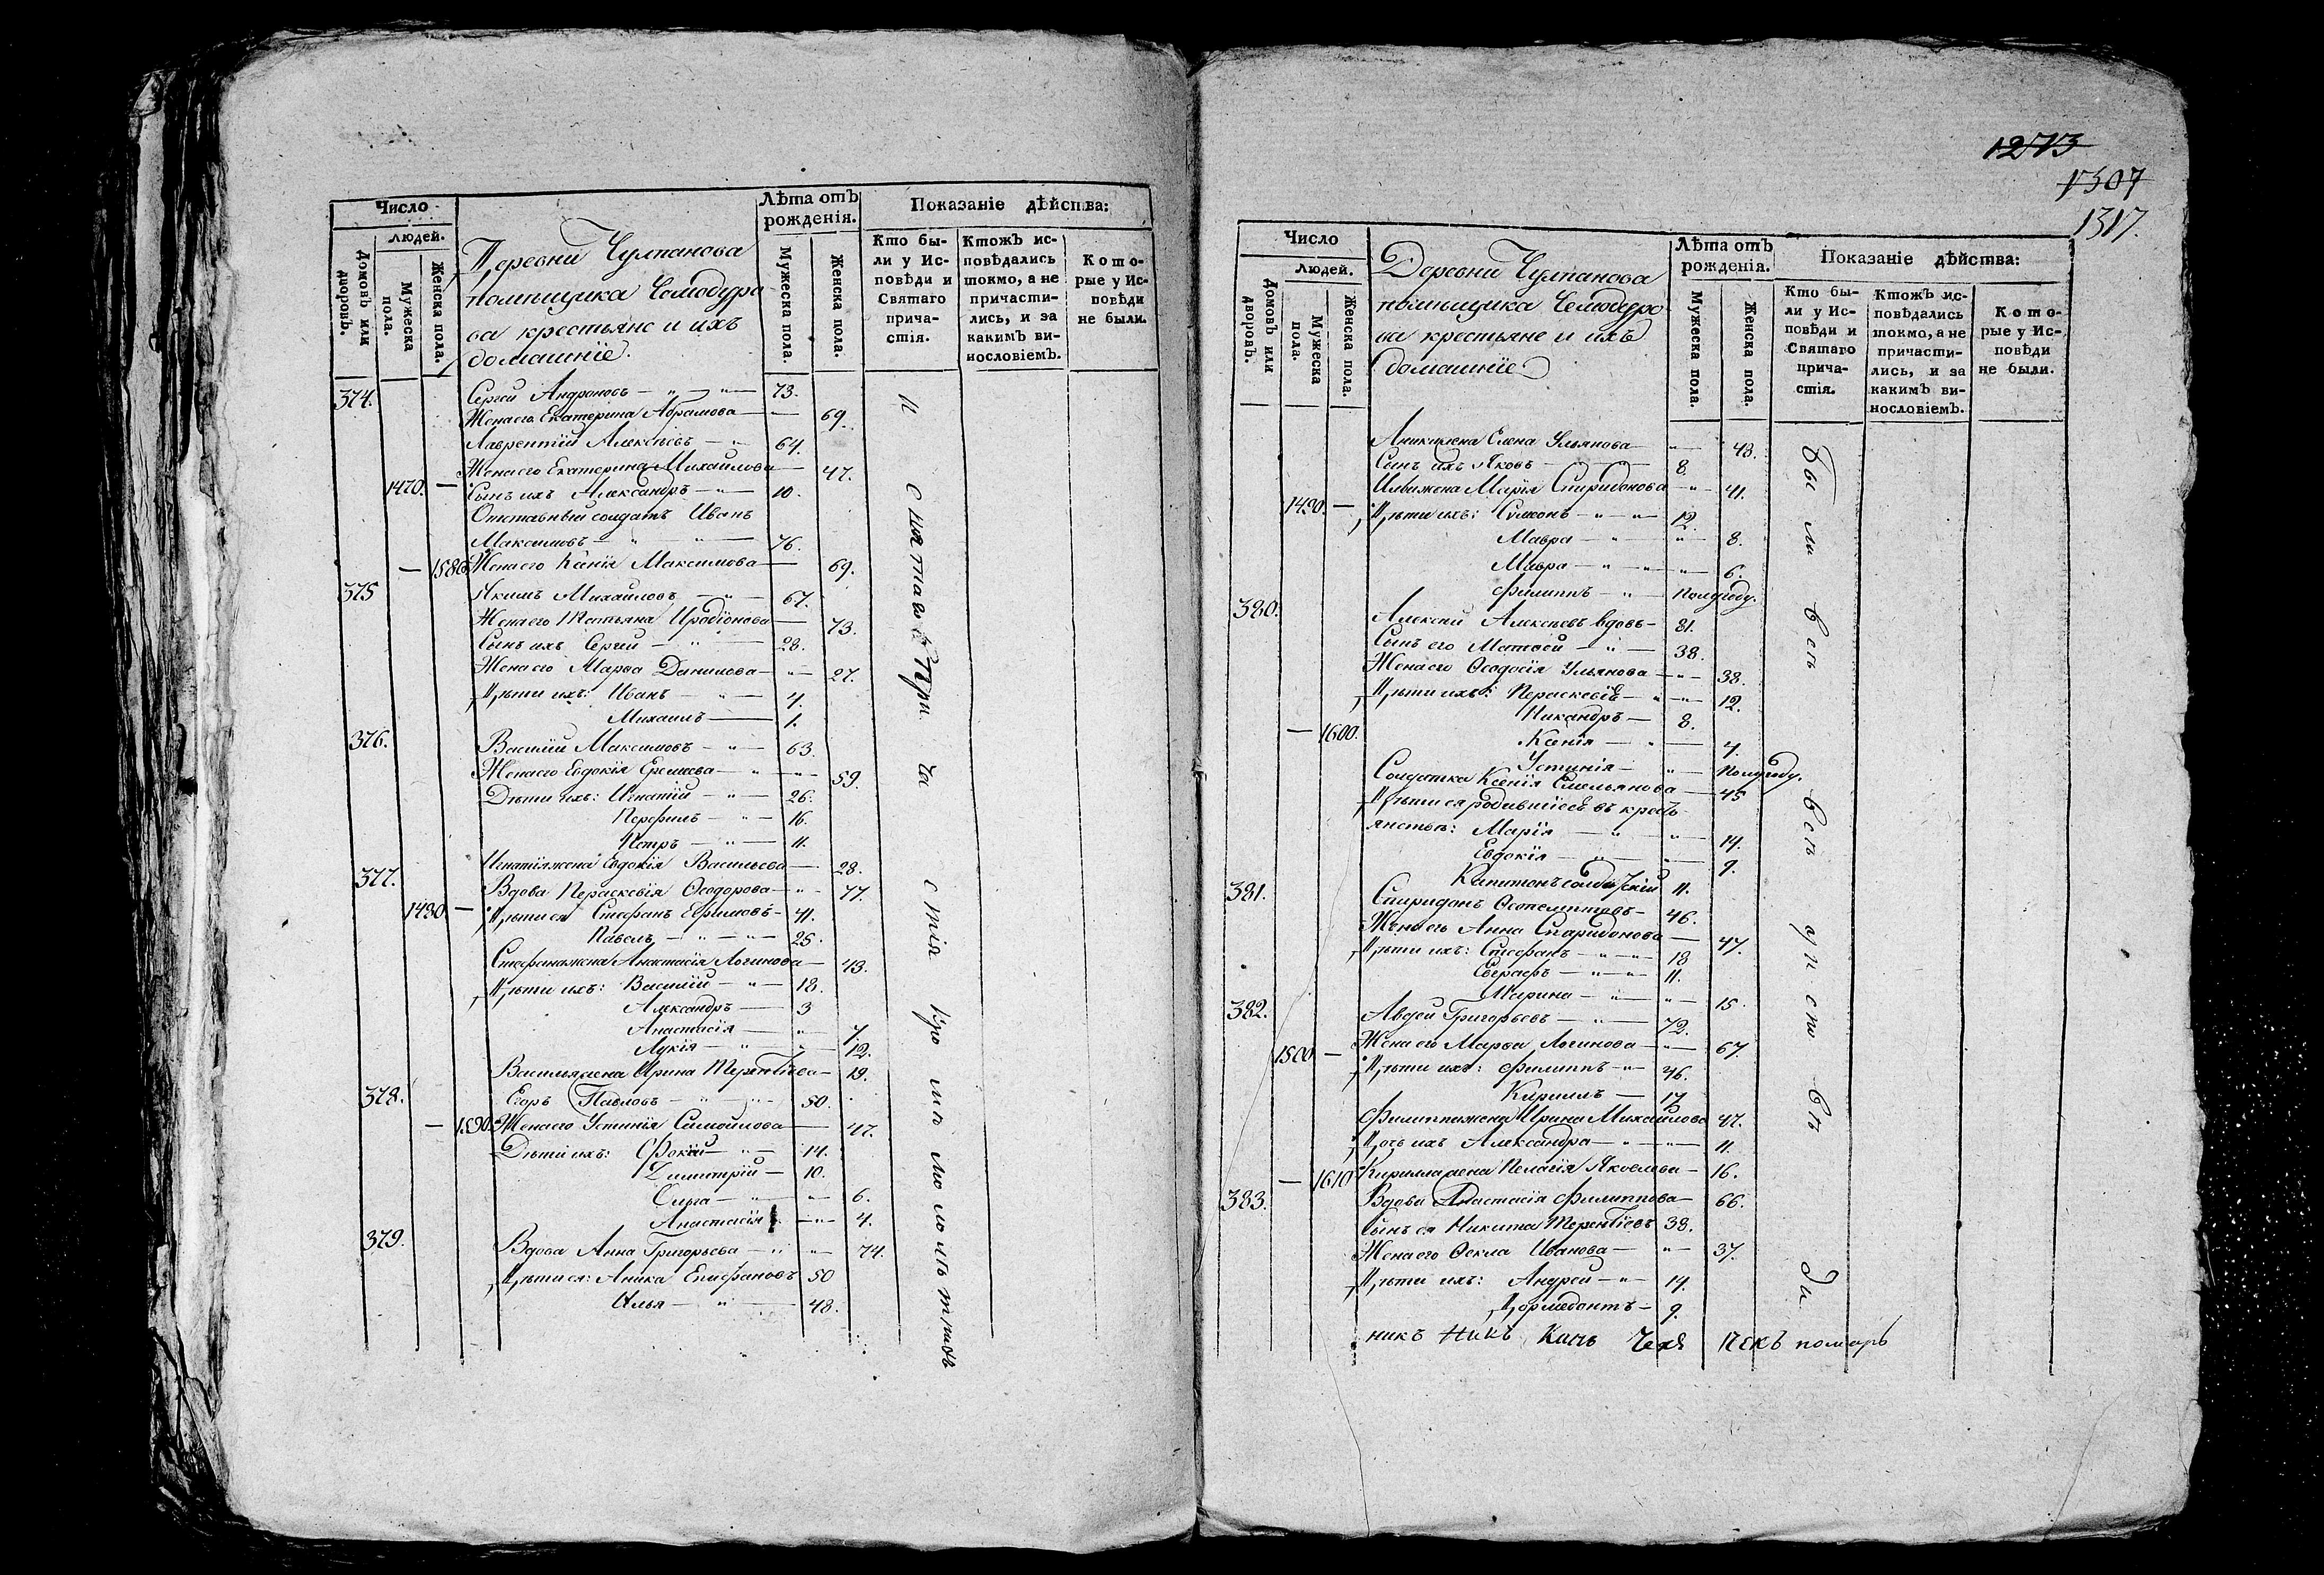 Число
людей.
Домовъ или дворовъ.
Мужеска пола.
Женска пола.
Деревни Чулпанова
помѣщика Чемодуро
ва крестьяне и ихъ
домашніе.
Лѣта отъ рожденія.
Мужеска пола.
Женска пола.
Показаніе дѣйства:
Кто бы-
ли у Ис-
повѣди и
Святаго
прича-
стія.
Ктожъ ис-
повѣдались
токмо, а не
причасти-
лись, и за
какимъ ви-
нословіемъ.
Кото-
рые у Ис-
повѣди
не были.
374. Сергей Андроновъ — „ — „ — 73.
Жена его Екатерина Абрамова — 69.
Лаврентій Алексѣевъ — „ 64.
Жена его Екатерина Михайлова — 47.
1470. — Сынъ ихъ Александръ — „ — 10.
Отставный солдатъ Иванъ
Максимовъ — „ — „ — 76.
— 1580. Жена его Ксенія Максимова — 69.
375 Якимъ Михайловъ — „ — 67.
Жена его Татьяна Иродіонова — 73.
Сынъ ихъ Сергей — „ — 28.
Жена его Марѳа Данилова — „ — 27.
Дѣти ихъ: Иванъ — „ — 4.
Михаилъ — 1.
376. Василій Максимовъ — „ — 63.
Жена его Евдокія Еремеева — „ — 59.
Дѣти ихъ: Игнатій — „ — 26.
Перфилъ — „ — 16.
Петръ — „ — 11.
Игнатія жена Евдокія Васильева — 28.
377. Вдова Параскевія Ѳеодорова — „ 77.
1480 — Дѣти ея Стефанъ Ефимовъ — 41.
Павелъ — „ — „ — 25.
Стефана жена Анастасія Логинова — 43.
Дѣти ихъ: Василій — „ — 18.
Александръ — 3
Анастасія — „ 7.
Лукія — „ — 12.
Василья жена Ирина Терентіева — 19.
378. Егоръ Павловъ — „ — „ 50.
— 1590. Жена его Устинія Самойлова — 47.
Дѣти ихъ: Фокій — „ — 14.
Димитрій — 10.
— „ — 6.
Анастасія — „ — 4.
379. Вдова Анна Григорьева — „ — 74.
Дѣти ея: Аника Епифановъ 50
Илья — „ — 48.
1273
1307
1317.
Число
людей.
Домовъ или дворовъ.
Мужеска пола.
Женска пола.
Деревни Чулпанова
помѣщика Чемодуро
ва крестьяне и ихъ
домашніе
Лѣта отъ рожденія.
Мужеска пола.
Женска пола.
Показаніе дѣйства:
Кто бы-
ли у Ис-
повѣди и
Святаго
прича-
стія.
Ктожъ ис-
повѣдались
токмо, а не
причасти-
лись, и за
какимъ ви-
нословіемъ.
Кото-
рые у Ис-
повѣди
не были.
Аники жена Елена Ульянова — 48.
Сынъ ихъ Яковъ — 8.
Ильи жена Марія Спиридонова — „ 41.
1490. — Дѣти ихъ: Симеонъ — „ — „ 12.
Мавра — „ — „ 8.
Мавра — „ — „ 6.
Филиппъ — „ — полугоду.
380. Алексей Алексѣевъ вдовъ — 81.
Сынъ его Матвей — „ — 38.
Жена его Ѳеодосія Ульянова — „ — 38.
Дѣти ихъ: Параскевія — „ — „ 12.
Никандръ — 8.
— 1600. Ксенія — „ — 4.
Устинія — „ — полугоду.
Солдатка Ксенія Емельянова — 45
Дѣти ея родившіеся въ кресть
янствѣ: Марія — „ — „ 14.
Евдокія — „ — 9.
Капитонъ солдатскій 11.
381. Спиридонъ 46.
Жена его Анна Спиридонова — 47.
Дѣти ихъ: Стефанъ — „ — 18
Евграфъ — „ — 11.
Марина — „ — 15.
382. Авдей Григорьевъ — „ — 72.
Жена его Марѳа Логинова — „ — 67.
1500 — Дѣти ихъ: Филиппъ — „ 46.
Кириллъ — 17
Филиппа жена Ирина Михайлова 47.
Дочь ихъ Александра — „ — „ 11.
— 1610 Кирилла жена Пелагія Яковлева — 16.
383. Вдова Анастасія Филиппова — 66.
Сынъ ея Никита Терентіевъ 38.
Жена его Ѳекла Иванова — „ — 37.
Дѣти ихъ: Андрей — „ — 14.
Дормедонтъ — 9.